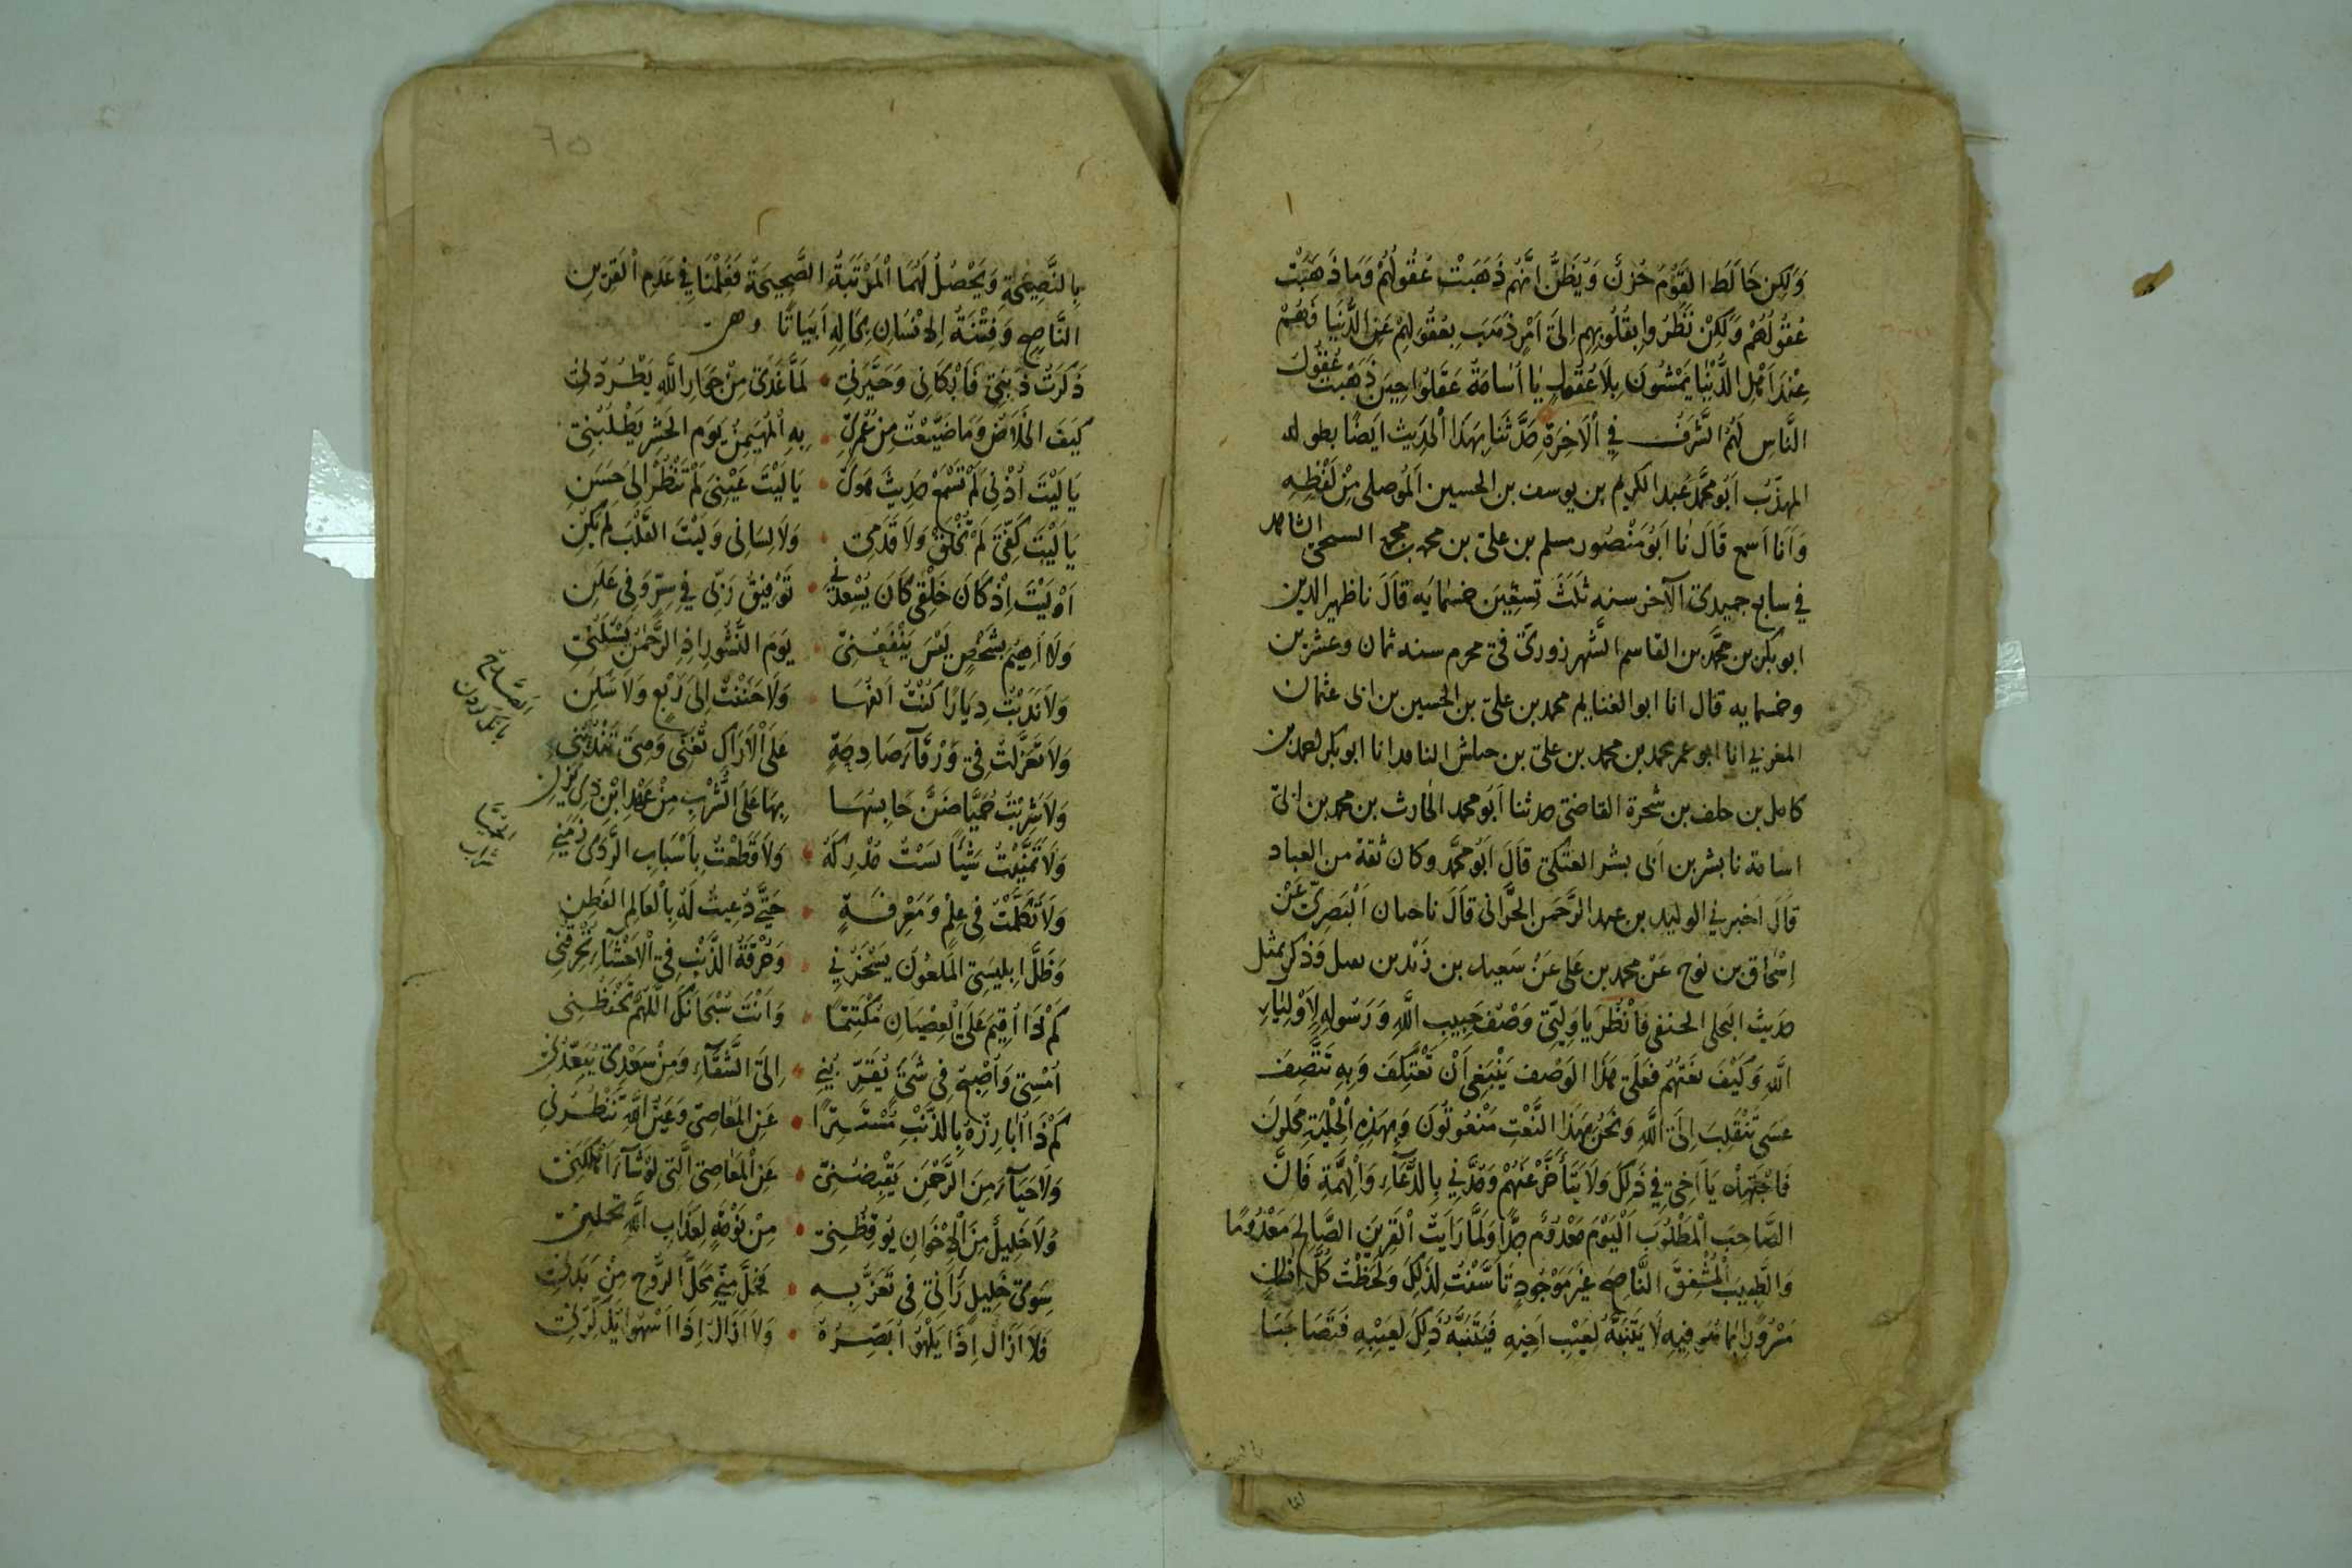 وَلَكِن خَالَطَ القَوْمَ حُزنٌ وَيُظَنُّ انَّهُم ذَهَبَتْ عُقُولُهُمْ وَمَا ذَهَبَتْ
عُقُولُهُمْ وَلَكِنْ نَظَرُوا بِقُلُوبِهِم اِلىَ اَمْرٍ ذَهَبَ بِعُقُولِهِمْ عَنِ الدُّنْيَا فَهُمْ
عِنْدَ اَهْلِ الدُّنْيَا يَمْشُونَ بِلَا عُقُولٍ يَا اُسَامَةُ عَقَلُوا حِينَ ذَهَبَت عُقُول
النَّاسِ لَهُمُ الشَّرَفُ فِي الْاَخِرَةِ حَدَّثَنَا بِهَذَا الْحَدِيث اَيضًا بطوله
المهذّبُ اَبُو مُحَمَّد عَبد الكريم بن يوسف بن الحسين المَوُصلى مِنْ لَفْظِهِ
وَاَنَا اَسمع قَالَ نا ابَوُ مَنْصُور مسلم بن على بن محمد بن محمد السيحى الشاهد
في سابع جميدى الآخر سنه ثَلَثَ تِسعِينَ خمسمايَه قَالَ نا ظهير الدين
ابو بكر بن محمَّد بن القاسم الشَّهرزورىّ فى محرم سنه ثمان وعشرين
وخمسمايه قال انا ابو الغنايم محمد بن علىّ بن الحسين بن ابى عثمان
المغربي انا ابو عمر محمد بن محمد بن علىّ بن حبلش الناقد انا ابو بكر احمد بن
كامل بن خلف بن شجرة القاضى حدثنا اَبُو محمد الحَارث بن محمد بن ابى
اسامة نا بشر بن ابى بشر العتكى قَالَ ابَوُ محمّد وكان ثقة من العباد
قَالَ اخبرني الوليد بن عبد الرَّحمَن الحَرَّانى قَالَ نا حبان اَلبَصرِىّ عَنْ
اِسْحَاق بن نوح عَنْ محمد بن على عَنْ سَعِيد بن زَيْد بن وَذَكَرَ بمثل
حَدِيثَ البجلى الحنفى فَانْظُر يَا وَلِيّى وَصْفَ حَبِيبِ اللهِ وَرَسُولِهِ لِاَوْلِيَاءِ
اللهِ وَكَيْفَ نَعَتَهُم فَعَلَى هَذَا الوَصْف يَنْبَغِى اَنْ تَعْتَكِفَ وَبِهِ تَتَّصِف
عَسَى تَنْقَلِبَ اِلىَ اللهِ وَنَحْنُ بِهَذا النَّعْتِ مَنْعُوتُونَ وَبِهَذِهِ الْحِلْيَةِ مُحَلَّونَ
فَاجْتَهِدْ يَا اَخِى فِي ذَلِكَ وَلَا يَتَأَخَّرْ عَنْهُمْ وَمُدَّنِي بِالدُّعَاءِ وَالْهِمَّةِ فَانَّ
الصَّاحِبَ الْمَطْلُوبَ اَلْيَوْمَ مَعْدُومٌ جِدًّا وَلَمَّا رَاَيْتُ الْقَرِينَ الصَّالِحَ مَعْدُومًا
وَالطَّبِيبَ الْمُشْفِقَ النَّاصِحَ غَيرَ مَوْجُودٍ تَأَسَّفْتُ لِذَلِكَ وَلَحَظْتُ كُلَّ اِنْسَانٍ
مَسْرُورًا بِمَا هُوَ فِيهِ لَا يَتَنَبَّهُ لِعَيْبِ اَخِيهِ فَيَتَنَبَّهُ ذَلِكَ لِعَيْبِهِ فَتَصَاحَبَا
بِالنَّصِيحَةِ وَيَحْصُلُ لَهُمَا الْمَرْتَبَةُ الصَّحِيحَةُ فَقُلْنَا فِي عَدَمِ الْقَرِينِ
النَّاصِحِ وَفِتْنَةُ الانْسَانِ بِحَالِهِ اَبيَاتًا وهى
ذَكَرْتُ ذَنبِى فَاَبْكَانى وَحَيَّرَنِي • لَمَّا غَدَى مِنْ جِوَارِ اللهِ يَطْرُدُنِي
كَيفَ الخَلَاصُ وَمَا ضَيَّعتُ مِن عُمُرِى • بِهِ الْمُهَيمِنُ يَومَ الحَشْرِ يَطْلُبُنِى
يَا لَيْتَ اُذْنِى لَمْ تَسْمَعْ حَدِيثَ هَوىً • يَا لَيْتَ عَيْنِىَ لَمْ تَنْظُرْ اِلى حَسَنِ
يَا لَيْتَ كَفِّىَ لَمْ تُخْلَقْ وَلَا قَدَمِى • وَلَا لِسَانِى وَلَيْتَ القَلْبَ لَمْ يَكُنِ
اَوْ لَيْتَ اِذْ كَانَ خَلْقِى كَانَ يُسْعِدُنِي • تَوْفِيقُ رَبّى فِي سِرّ وَفِى عَلَنِ
وَلَا اَهِيمُ بِشَخْصٍ لَيْسَ يَنْفَعُنِى • يَومَ النُّشُورِ اِذِ الرَّحْمٰنُ يَسْئَلُنِى
وَلَا نَدَبْتُ دِيَارًا كُنْتُ آلَفُهَا • وَلَا حَنَنْتُ اِلىَ رَبْعٍ وَلَا سَكَنِ
وَلَا تَغَزَّلْتُ فِى وَرْقَاءَ صَادِحَةٍ • عَلَى الْاَرَاكِ تُغَنّى وَهِىَ تَنْدُبُنِي
وَلَا شَرِبْتُ حُمَيَّا ضَنَّ حَابِسُهَا • بِهَا عَلَى الشَّرْبِ مِنْ عَهْدِ ابْنِ ذِى يَزَنِ
وَلَا تَمَنَّيْتُ شَيْئًا لَسْتُ مُدْرِكَهُ • وَلَا قَطَعْتُ بِاَسْبَابِ الرَّدَى زَمَنِي
وَلَا تَكَلَّمْتُ فِى عِلْمٍ وَمَعْرِفَةٍ • حَتَّى دُعِيتُ لَهُ بِالْعَالِمِ الفَطِنِ
وَظَلَّ اِبلِيسِىَ المَلعُونُ يَسْخَرُ بِي • وَحُرْقَةُ الذَّنْبِ فِى الْاَحْشَاءِ تُحْرِقُنِى
كَمْ ذَا اُقِيمُ عَلَى الْعِصْيَانِ مُكْتَتِمًا • وَاَنْتَ سُبْحَانَكَ اللّٰهُمَّ تَحْفَظُنِى
اُمْسِى وَاُصْبِحُ فِى شَىْءٍ يُقَرِّبُنِي • اِلىَ الشَّقَاءِ وَمِنْ سَعْدِى يُبَعِّدُنِي
كَمْ ذَا اُبَارِزُهُ بِالذَّنْبِ مُسْتَتِرًا • عَنِ المَعَاصِى وَعَينُ اللهِ تَنْظُرُنِى
وَلَا حَيَاءَ مِنَ الرَّحْمٰنِ يَقْبِضُنِى • عَنِ الْمَعَاصِى الَّتِى لَوْ شَاءَ اَهْلَكَنِى
وَلَا خَلِيلٌ مِنَ الْاِخْوَانِ يُوقِظُنِى • مِنْ نَوْمَةٍ لِعَذَابِ اللهِ تحملنى
سِوَى خَلِيلٍ رَآنِى فِى تَعَزُّبِهِ • فَحَلَّ مِنِّي مَحَلَّ الرُّوحِ مِنْ بَدَنِي
فَلَا اَزَالُ اِذَا يَلْهُو اُبَصِّرُهُ • وَلَا اَزَالُ اِذَا اَسْهُو يُذَكِّرُنِي